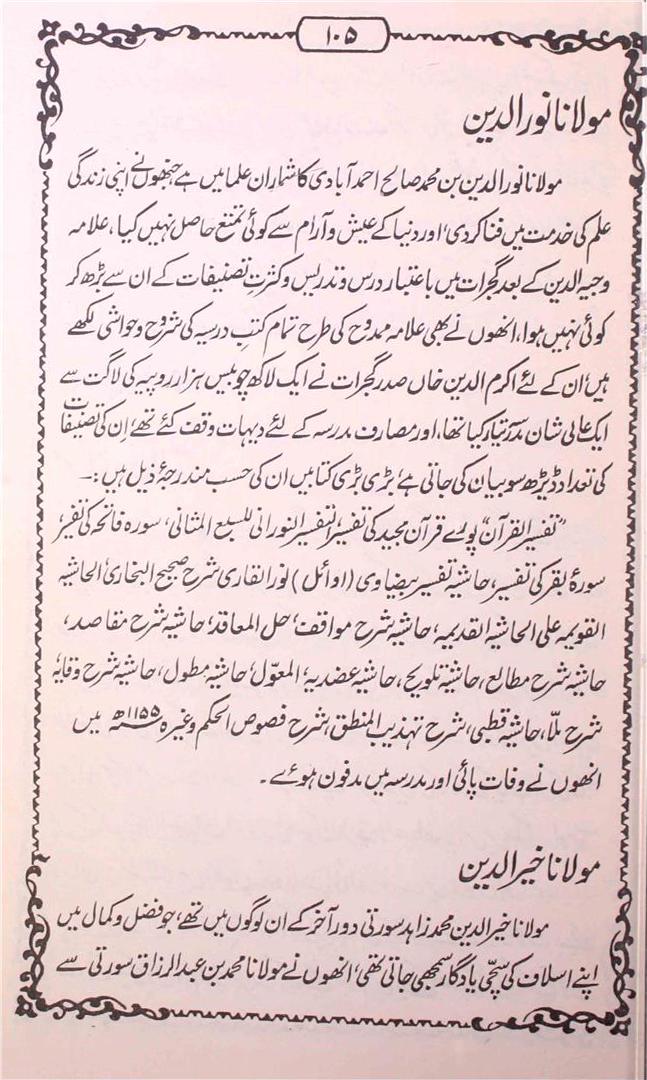 ۱۰۵
مولانا نورالدین
مولانا نورالدین بن محمد صالح احمدآبادی کا شمار ان علما میں ہے جنھوں نے اپنی زندگی
علم کی خدمت میں فنا کردی، اور دنیا کے عیش و آرام سے کوئی تمتع حاصل نہیں کیا، علامہ
وجیہ الدین کے بعد گجرات میں باعتبار درس و تدریس و کثرتِ تصنیفات کے ان سے بڑھ کر
کوئی نہیں ہوا، انھوں نے بھی علامہ ممدوح کی طرح تمام کتب درسیہ کی شروح و حواشی لکھے
ہیں، ان کے لئے اکرم الدین خاں صدر گجرات نے ایک لاکھ چوبیس ہزار روپیہ کی لاگت سے
ایک عالی شان مدرسہ تیار کیا تھا، اور مصارف مدرسہ کے لئے دیہات وقف کئے تھے، اِن کی تصنیفات
کی تعداد ڈیڑھ سو بیان کی جاتی ہے، بڑی بڑی کتابیں ان کی حسب مندرجۂ ذیل ہیں :۔
”تفسیر القرآن“ پورے قرآن مجید کی تفسیر، التفسیر النورانی للسبع المثانی، سورہ فاتحہ کی تفسیر،
سورۂ بقر کی تفسیر، حاشیۂ تفسیر بیضاوی (اوائل) نورالقاری شرح صحیح البخاری، الحاشیہ
القویمہ علی الحاشیہ القدیمہ، حاشیۂ شرح مواقف، حل المعاقد، حاشیہ شرح مقاصد،
حاشیۂ شرح مطالع، حاشیۂ تلویح، حاشیۂ عضدیہ، المعوّل، حاشیۂ مطول، حاشیۂ شرح وقایہ،
شرح ملّا، حاشیۂ قطبی، شرح تہذیب المنطق، شرح فصوص الحکم وغیرہ ۱۱۵۵ھ میں
انھوں نے وفات پائی اور مدرسہ میں مدفون ہوئے۔
مولانا خیرالدین
مولانا خیرالدین محمد زاہد سورتی دور آخر کے ان لوگوں میں تھے، جو فضل و کمال میں
اپنے اسلاف کی سچّی یادگار سمجھی جاتی تھی، انھوں نے مولانا محمد بن عبدالرزاق سورتی سے